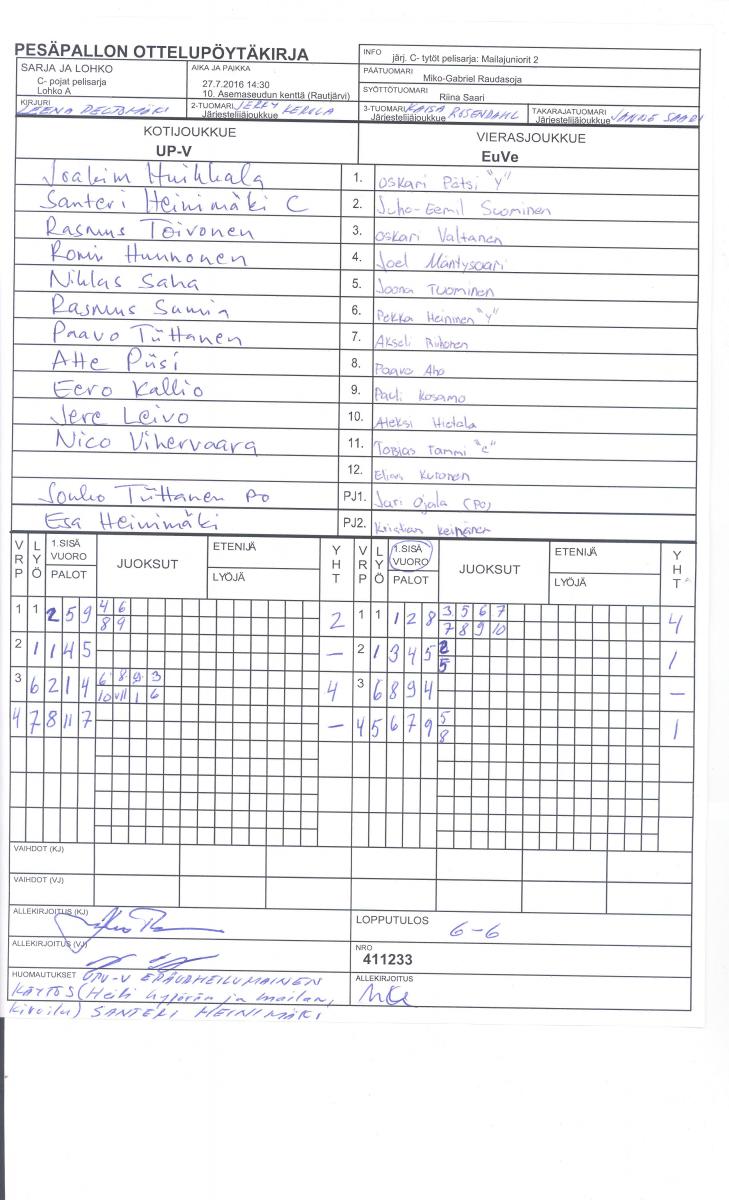 PESÄPALLON OTTELUPÖYTÄKIRJA
INFO järj. C- tytöt pelisarja: Mailajuniorit 2
SARJA JA LOHKO
C- pojat pelisarja
Lohko A
AIKA JA PAIKKA
27.7.2016 14:30
10. Asemaseudun kenttä (Rautjärvi)
PÄÄTUOMARI Miko-Gabriel Raudasoja
SYÖTTÖTUOMARI Riina Saari
KIRJURI LEENA PELTOMÄKI
2-TUOMARI JERRY KEROLA
Järjestelijäjoukkue
3-TUOMARI KAISA ROSENDAHL
Järjestelijäjoukkue
TAKARAJATUOMARI JANNE SAARI
Järjestelijäjoukkue
KOTIJOUKKUE VIERASJOUKKUE
UP-V EuVe
Joakim Huikkala 1. Oskari Pätsi "Y"
Santeri Heinimäki C 2. Juho-Eemil Suominen
Rasmus Toivonen 3. Oskari Valtanen
Romi Hunnonen 4. Joel Mäntysaari
Niklas Saha 5. Joona Tuominen
Rasmus Sumia 6. Pekka Heininen "Y"
Paavo Tiittanen 7. Akseli Riihonen
Atte Piisi 8. Paavo Aho
Eero Kallio 9. Pauli Kosamo
Jere Leivo 10. Aleksi Hietala
Nico Vihervaara 11. Tobias Tammi "C"
12. Elias Kuronen
Jouko Tiittanen PO PJ1. Jari Ojala (PO)
Esa Heinimäki PJ2. Kristian Keinänen
VRP LYÖ 1.SISÄ VUORO PALOT JUOKSUT ETENIJÄ LYÖJÄ YHT VRP LYÖ 1.SISÄ VUORO PALOT JUOKSUT ETENIJÄ LYÖJÄ YHT
1 1 2 5 9 4 6 2 1 1 1 2 8 3 5 6 7 4
8 9 7 8 9 10
2 1 1 4 5 – 2 1 3 4 5 2 1
5
3 6 2 1 4 6 8 9 3 4 3 6 8 9 4 –
10 VII 1 6
4 7 8 11 7 – 4 5 6 7 9 5 1
8
VAIHDOT (KJ)
VAIHDOT (VJ)
ALLEKIRJOITUS (KJ)
LOPPUTULOS 6-6
ALLEKIRJOITUS (VJ)
NRO
411233
HUOMAUTUKSET UPV-V EPÄURHEILUMAINEN
KÄYTÖS (Heitti kypärän ja mailan,
kiroilu) SANTERI HEINIMÄKI
ALLEKIRJOITUS